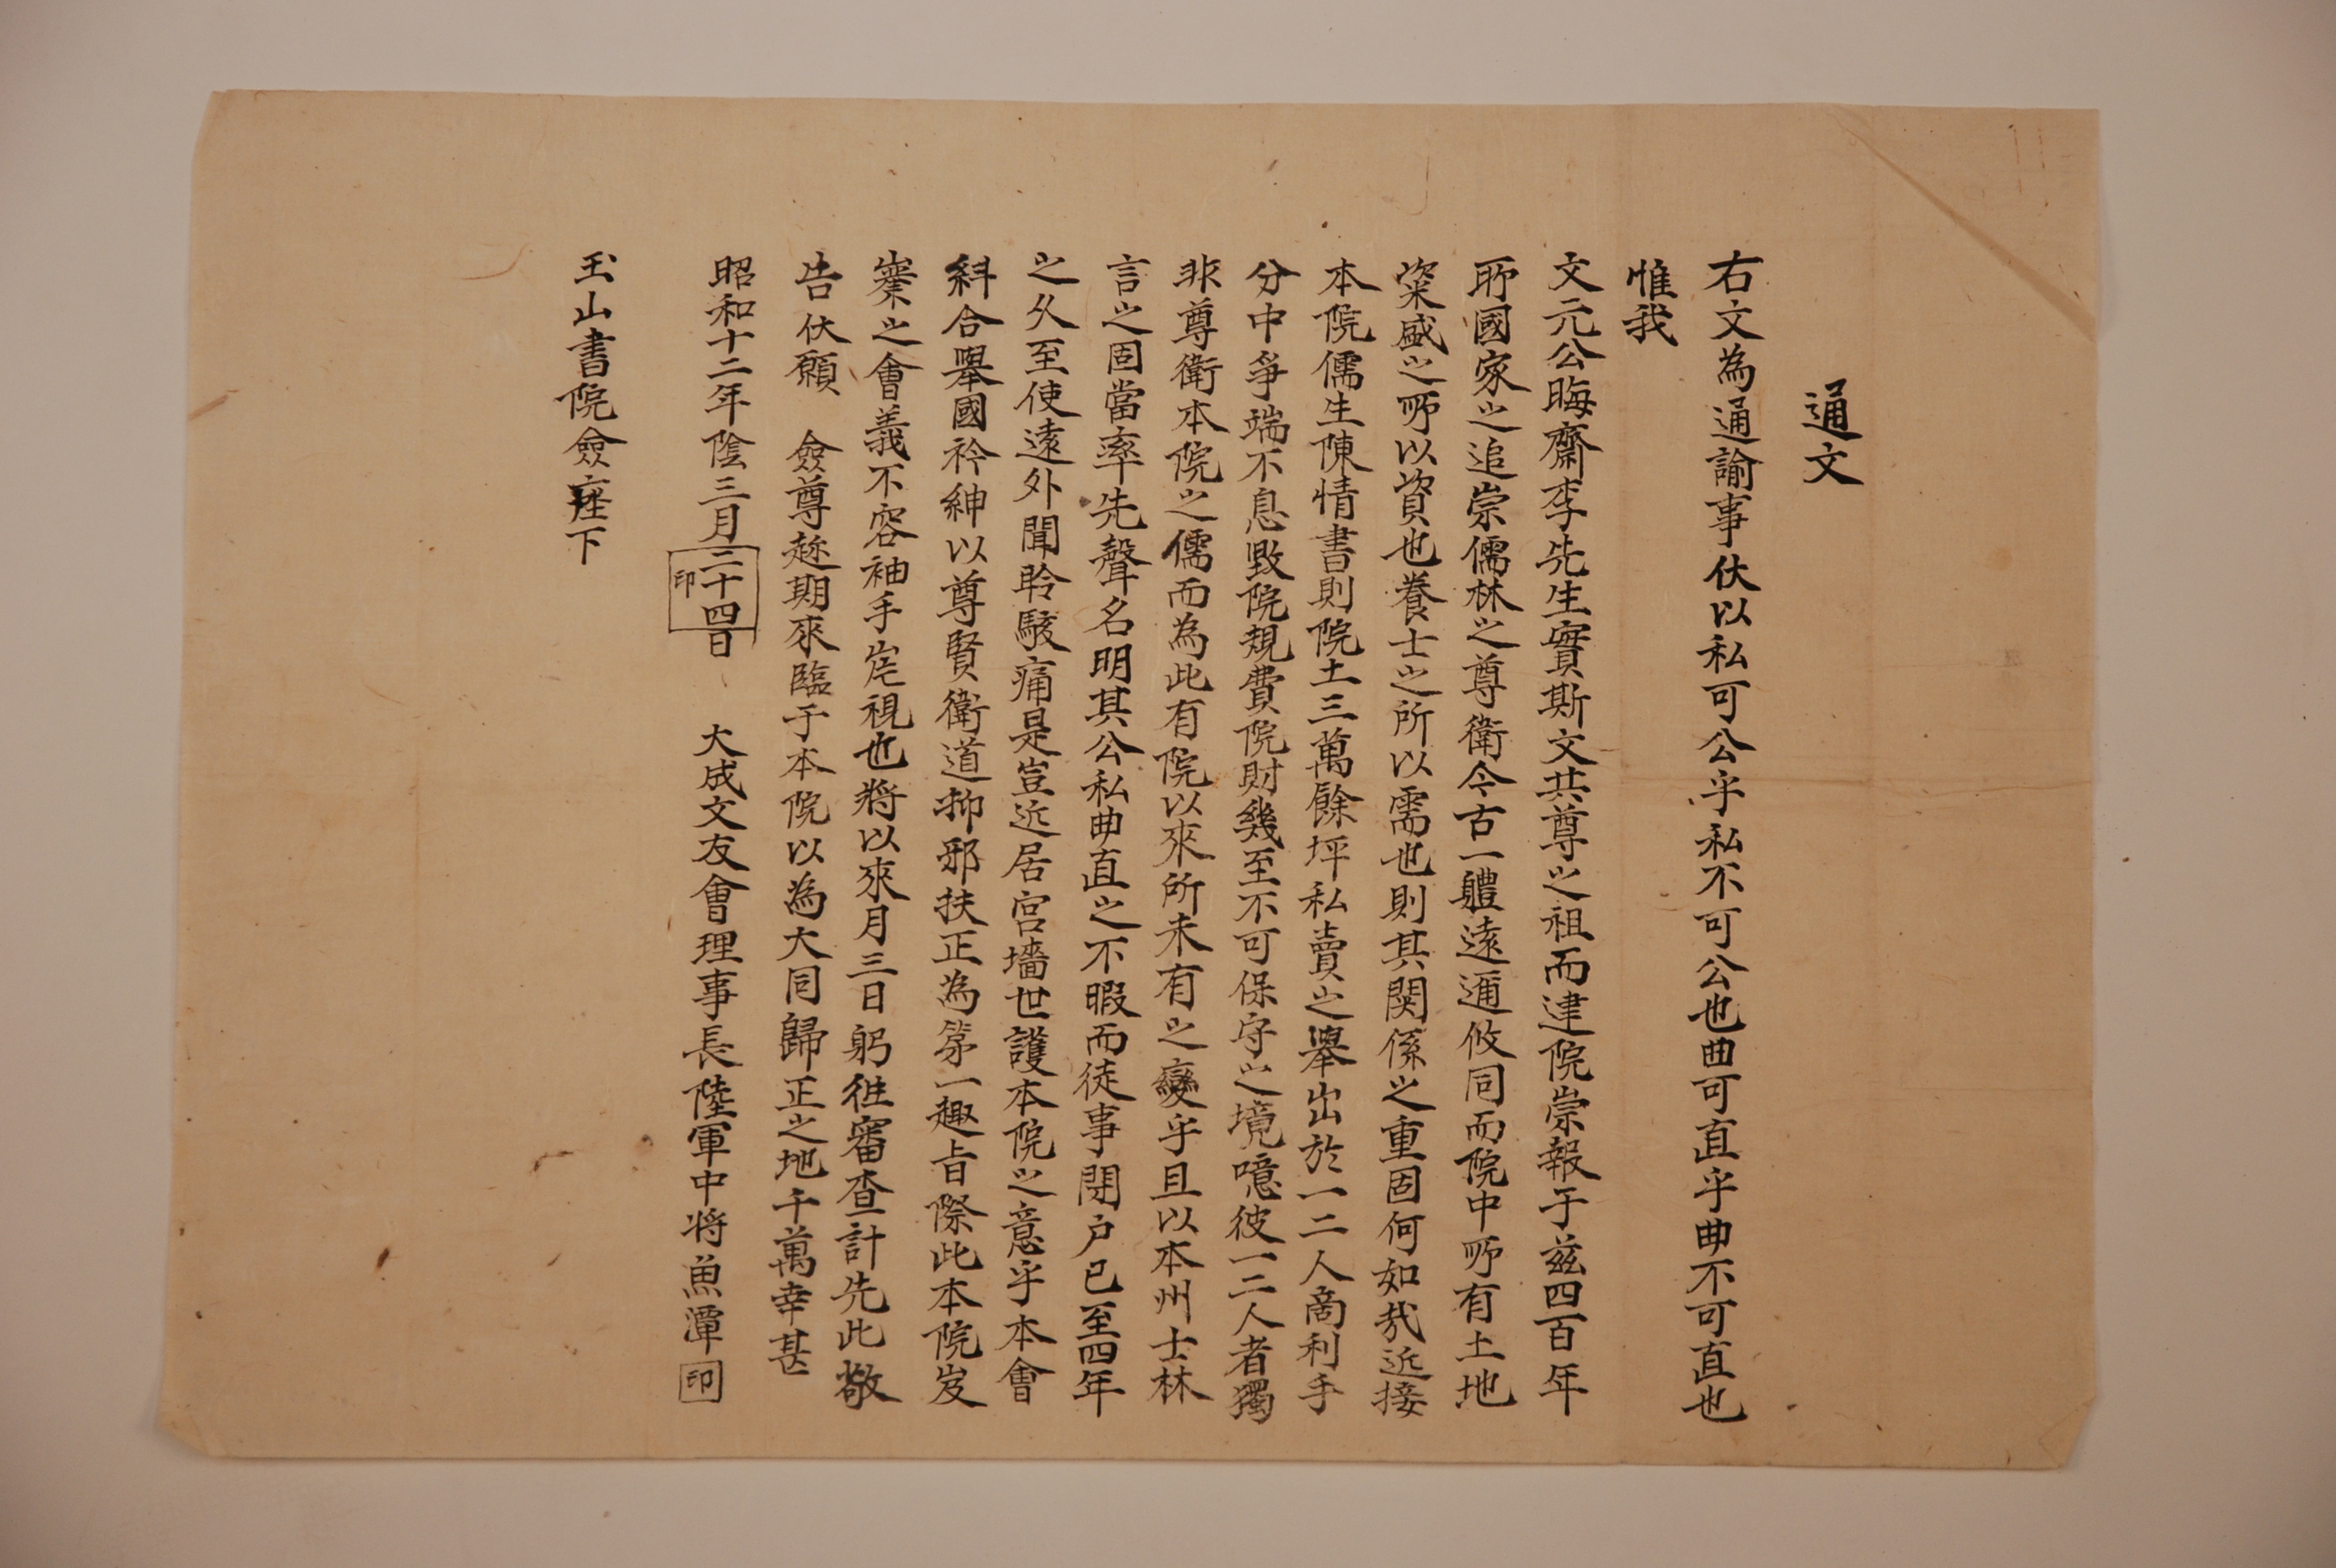 通文
右文為通諭事伏以私可公乎私不可公也曲可直乎曲不可直也
惟我
文元公晦齋李先生實斯文共尊之祖而建院崇報于茲四百年
所國家之追崇儒林之尊衛今古一軆遠邇攸同而院中所有土地
粢盛之所以資也養士之所以需也則其関係之重固何如㦲近接
本院儒生陳情書則院土三萬餘坪私賣之舉出於一二人啇利手
分中爭端不息毀院規費院財幾至不可保守之境噫彼一二人者獨
非尊衛本院之儒而為此有院以來所未有之變乎且以本州士林
言之固當率先聲名明其公私曲直之不暇而徒事閉户已至四年
之久至使遠外聞聆駭痛是豈近居宮墻世護本院之意乎本會
糾合舉國衿紳以尊賢衛道抑邪扶正為第一趣旨際此本院岌
嶪之會義不容袖手㟴視也將以來月三日躬徃審查計先此敬
告伏願 僉尊趂期來臨于本院以為大同歸正之地千萬幸甚
昭和十二年陰三月二十四日 印 大成文友會理事長陸軍中將魚潭 印
玉山書院僉座下